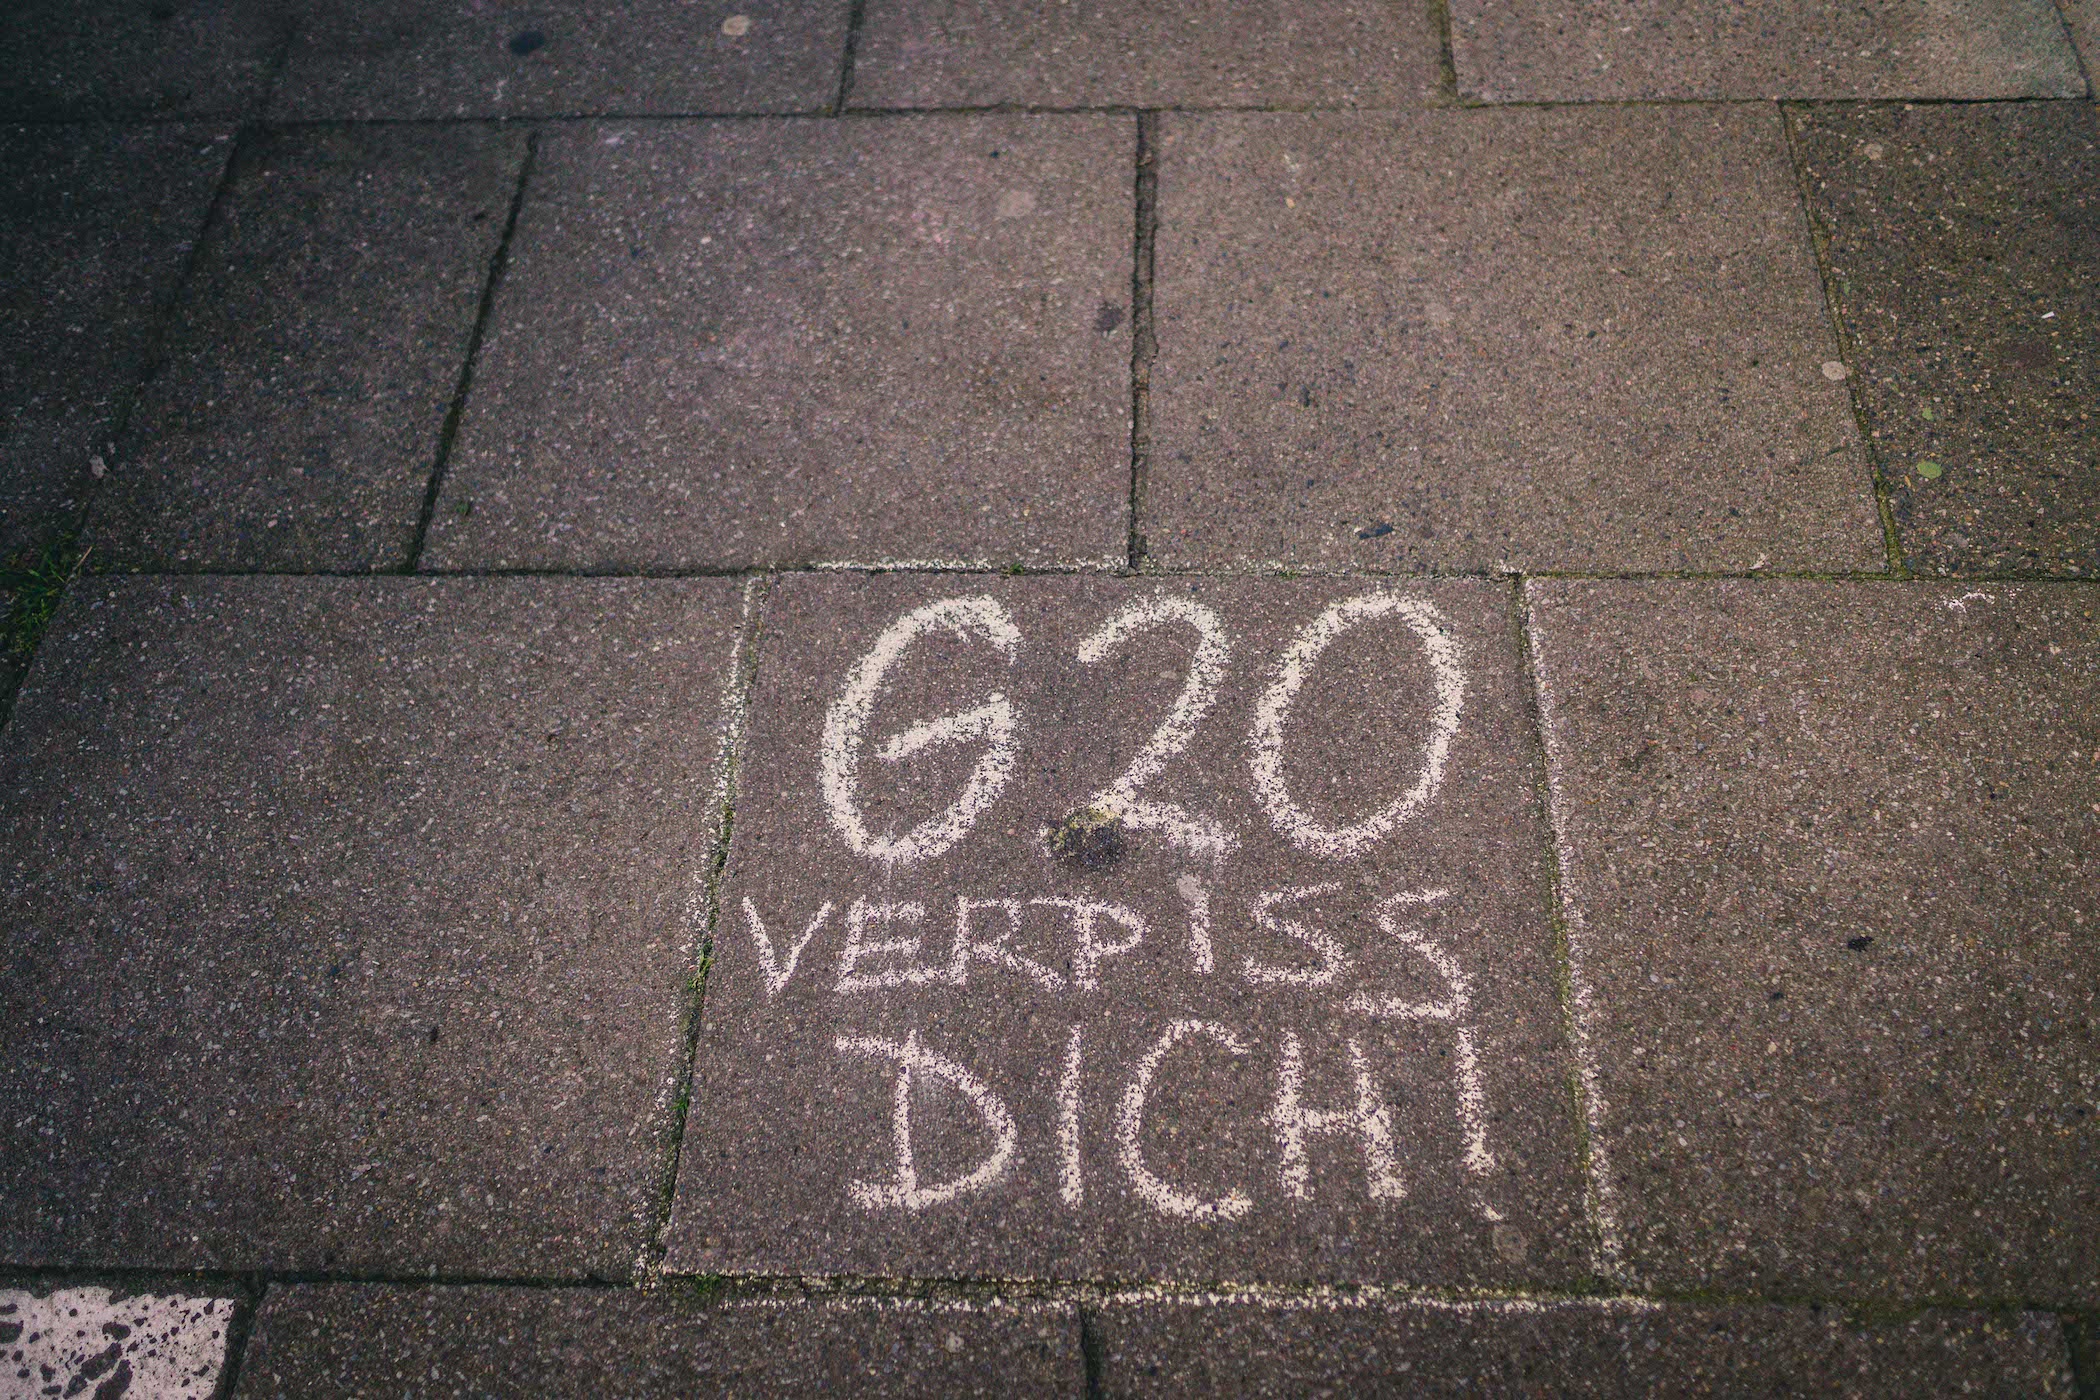 G20
VERPISS
DICH!